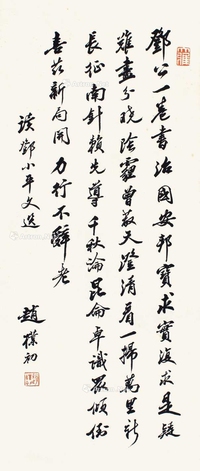 鄧公一卷書治國安邦寶求實復求是疑
難盡分曉陰霾曾蔽天澄清看一掃萬里新
長征南針賴先導千秋論昆侖卓識眾傾倒
喜茲新局開力行不辭老
讀鄧小平文選
趙樸初